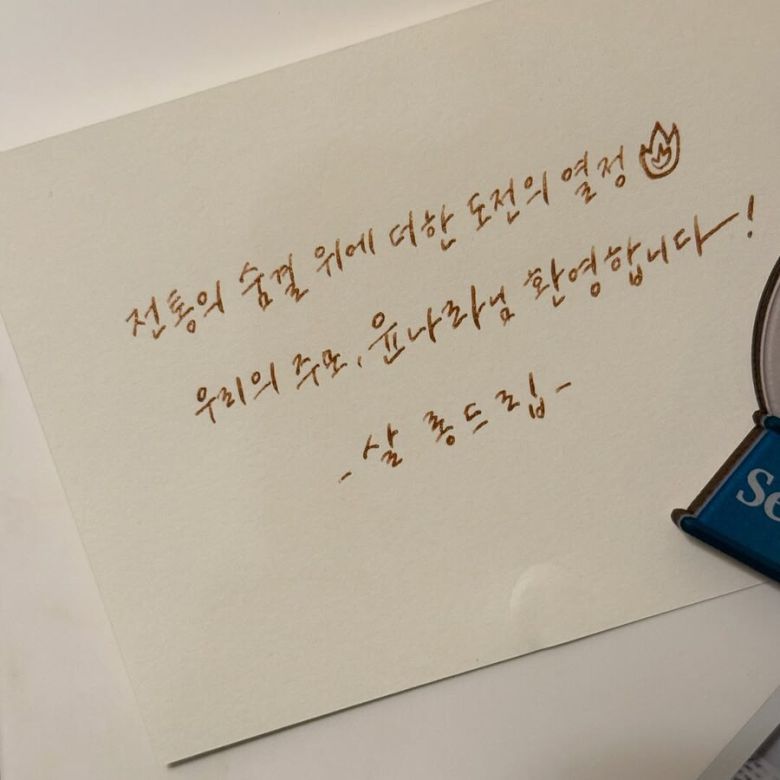 전통의 숨결 위에 더한 도전의 열정
우리의 주모, 윤나라님 환영합니다!
-살롱드립-
Se